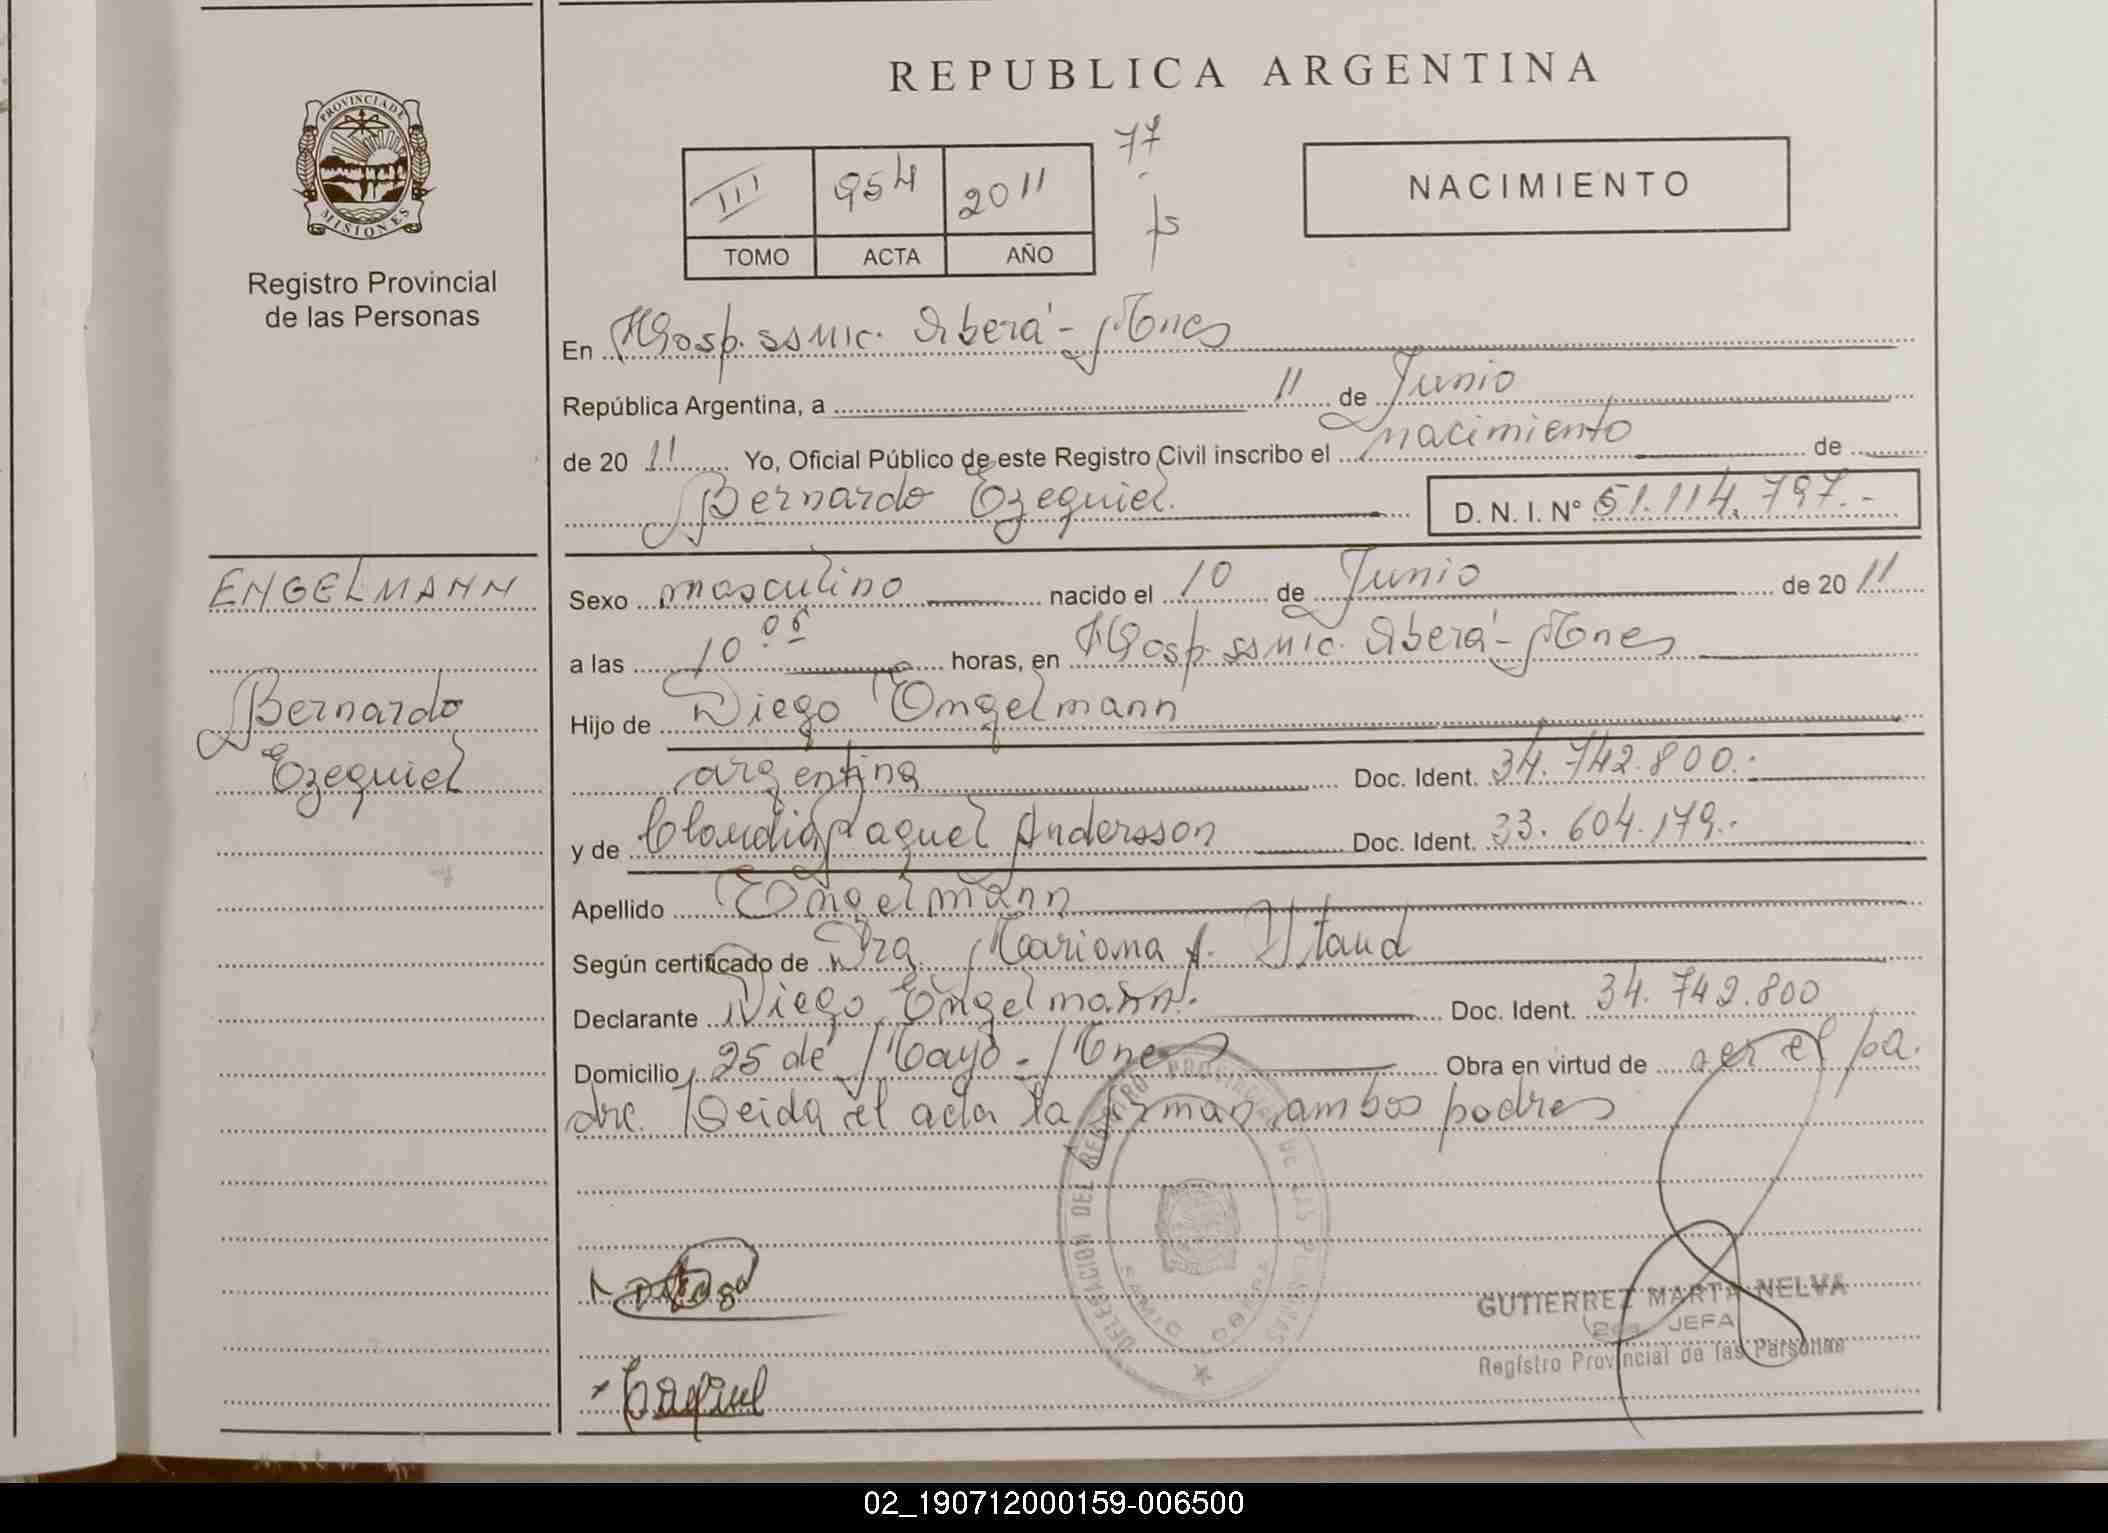 REPUBLICA ARGENTINA
PROVINCIA DE MISIONES
Registro Provincial
de las Personas
III 954 2011
TOMO ACTA AÑO
77
fs
NACIMIENTO
En Hosp. SSMIC. Oberá - Mnes
República Argentina, a 11 de Junio
de 20 11 Yo, Oficial Público de este Registro Civil inscribo el nacimiento de
Bernardo Ezequiel D. N. I. Nº 51.114.797.-
ENGELMANN
Bernardo
Ezequiel
Sexo masculino nacido el 10 de Junio de 20 11
a las 10 05 horas, en Hosp. SSMIC. Oberá - Mnes
Hijo de Diego Engelmann
argentina Doc. Ident. 34.742.800.-
y de Claudia Raquel Andersson Doc. Ident. 33.604.179.-
Apellido Engelmann
Según certificado de Dra. Mariana A.
Declarante Diego Engelmann. Doc. Ident. 34.742.800
Domicilio 25 de Mayo - Mnes Obra en virtud de ser el pa.
dre. Leida el acta la firman ambos padres
DELEGACION DEL REGISTRO PROVINCIAL DE LAS PERSONAS
SAMIC OBERA
GUTIERREZ MARTA NELVA
JEFA
Registro Provincial de las Personas
02_190712000159-006500